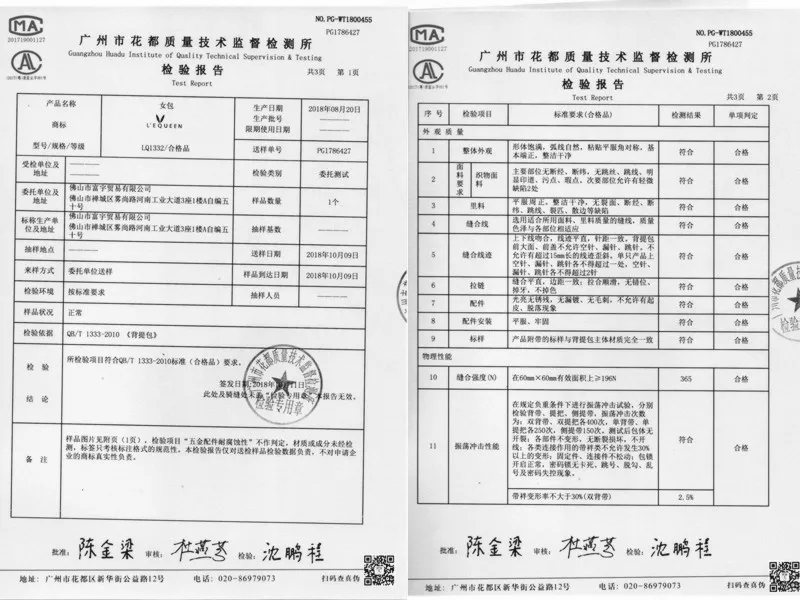 MA
201719001127
NO.PG-WT1800455
PG1786427
广州市花都质量技术监督检测所
Guangzhou Huadu Institute of Quality Technical Supervision & Testing
检验报告
Test Report
共3页 第1页
产品名称
女包
商标
L'EQUEEN
型号/规格/等级
LQ1332/合格品
生产日期
2018年08月20日
生产批号
————
限期使用日期
————
送样单号
PG1786427
受检单位及地址
————
————
检验类别
委托测试
委托单位及地址
佛山市富宇贸易有限公司
佛山市禅城区雾岗路河南工业大道3座1楼A自编五十号
样品数量
1个
标称生产单位及地址
佛山市富宇贸易有限公司
佛山市禅城区雾岗路河南工业大道3座1楼A自编五十号
抽样基数
————
抽样地点
————
送样日期
2018年10月09日
来样方式
委托单位送样
样品到达日期
2018年10月09日
检验环境
按标准要求
抽样人员
————
样品状况
正常
检验依据
QB/T 1333-2010 《背提包》
检验结论
所检验项目符合QB/T 1333-2010标准(合格品)要求。
此处及骑缝处未盖“检验专用章”本报告无效。
备注
样品图片见附页(1页),检验项目“五金配件耐腐蚀性”不作判定,材质或成分未经检
测,标签只考核标注格式的规范性。本检验报告仅对送检样品检验数据负责,不对申请企
业的商标真实性负责。
批准: 陈金梁 审核: 检验: 沈鹏程
地址: 广州市花都区新华街公益路12号 电话: 020-86979073 扫码查真伪
MA
201719001127
NO.PG-WT1800455
PG1786427
广州市花都质量技术监督检测所
Guangzhou Huadu Institute of Quality Technical Supervision & Testing
检验报告
Test Report
共3页 第2页
序号 检验项目 标准要求(合格品) 检测结果 单项判定
外观质量
1 整体外观 形体饱满,弧线自然,粘贴平服角对称,基
本端正,整洁干净 符合 合格
2 面料要求 织物面料 主要部位无断经、断纬、无跳丝、跳线、明
显印道、污点、瑕点、次要部位允许有轻微
缺陷2处 符合 合格
3 里料 平服周正,整洁干净,无裂面、断经、断
纬、跳线、裂匹、散边等缺陷 符合 合格
4 缝合线 选用适合所用面料、里料质量的缝线,质量
色泽与各部位相适应 符合 合格
5 缝合线迹 上下线吻合,线迹平直,针距一致,背提包
前大面、前盖不允许空针、漏针、跳针,不
允许有超过15mm长的线迹歪斜,单只产品上
空针、漏针、跳针各不得超过一处,空针、
漏针、跳针各不得超过2针 符合 合格
6 拉链 缝合平直,边距一致;拉合顺滑,无错位、
掉牙,不掉色 符合 合格
7 配件 光亮无锈残,无漏镀、无毛刺,不允许有起
皮、脱落现象 符合 合格
8 配件安装 平服、牢固 符合 合格
9 标样 产品附带的标样与背提包主体材质完全一致 符合 合格
物理性能
10 缝合强度(N) 在60mm×60mm有效面积上≥196N 365 合格
11 振荡冲击性能 在规定负重条件下进行振荡冲击试验,分别
检验背带、提把、侧提带,振荡冲击次数
为:双背带、双提把各400次,单背带、单
提把各250次,侧提带150次。测试后包体无
开裂;各部件不变形、无断裂损坏,不开
线;各类连接作用的带袢类不允许发生30%
以上的变形;固定件、连接件不松动;包锁
开启正常,密码锁无卡死、跳号、脱勾、乱
号及密码失控现象。 符合 合格
带袢变形率不大于30%(双背带) 2.5%
批准: 陈金梁 审核: 检验: 沈鹏程
地址: 广州市花都区新华街公益路12号 电话: 020-86979073 扫码查真伪